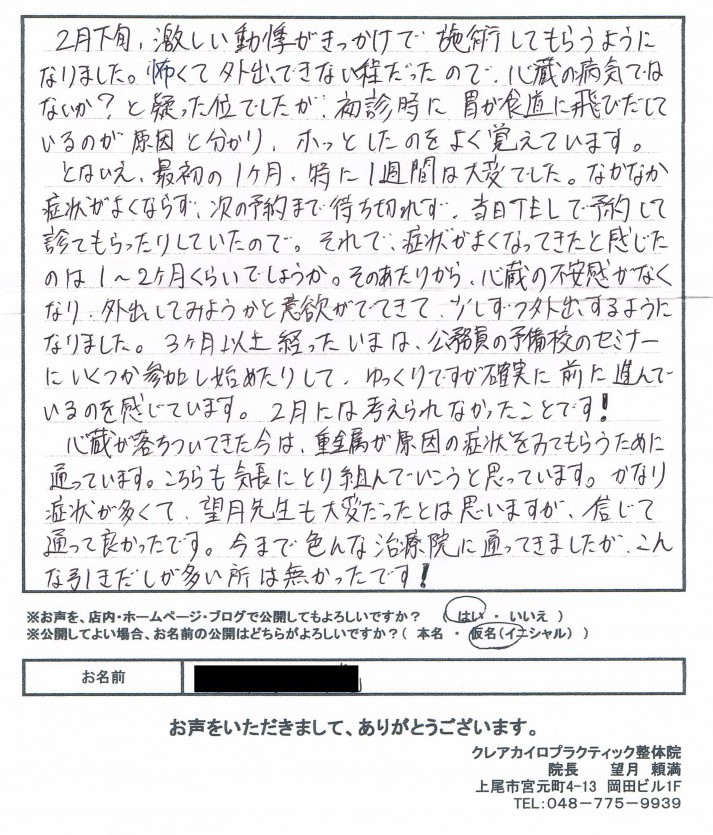 2月下旬、激しい動悸がきっかけで 施術してもらうように
なりました。怖くて外出できない程だったので、心臓の病気では
ないか？と疑った位でしたが、初診時に 胃が食道に飛びだして
いるのが原因と分かり、ホッとしたのをよく覚えています。
とはいえ、最初の1ヶ月、特に1週間は大変でした。なかなか
症状がよくならず、次の予約まで待ち切れず、当日TELで予約して
診てもらったりしていたので。それで、症状がよくなってきたと感じた
のは1～2ヶ月くらいでしょうか。そのあたりから、心臓の不安感がなく
なり、外出してみようかと意欲がでてきて、少しずつ外出するように
なりました。3ヶ月以上経ったいまは、公務員の予備校のセミナー
にいくつか参加し始めたりして、ゆっくりですが確実に前に進んで
いるのを感じています。2月には考えられなかったことです！
心臓が落ちついてきた今は、重金属が原因の症状をみてもらうために
通っています。こちらも気長にとり組んでいこうと思っています。かなり
症状が多くて、望月先生も大変だったとは思いますが、信じて
通って良かったです。今まで色んな治療院に通ってきましたが、こん
な引きだしが多い所は無かったです！
※お声を、店内・ホームページ・ブログで公開してもよろしいですか？ （ はい ・ いいえ ）
※公開してよい場合、お名前の公開はどちらがよろしいですか？（ 本名 ・ 仮名（イニシャル） ）
お名前
お声をいただきまして、ありがとうございます。
クレアカイロプラクティック整体院
院長 望月 頼満
上尾市宮元町4-13 岡田ビル1F
TEL:048-775-9939